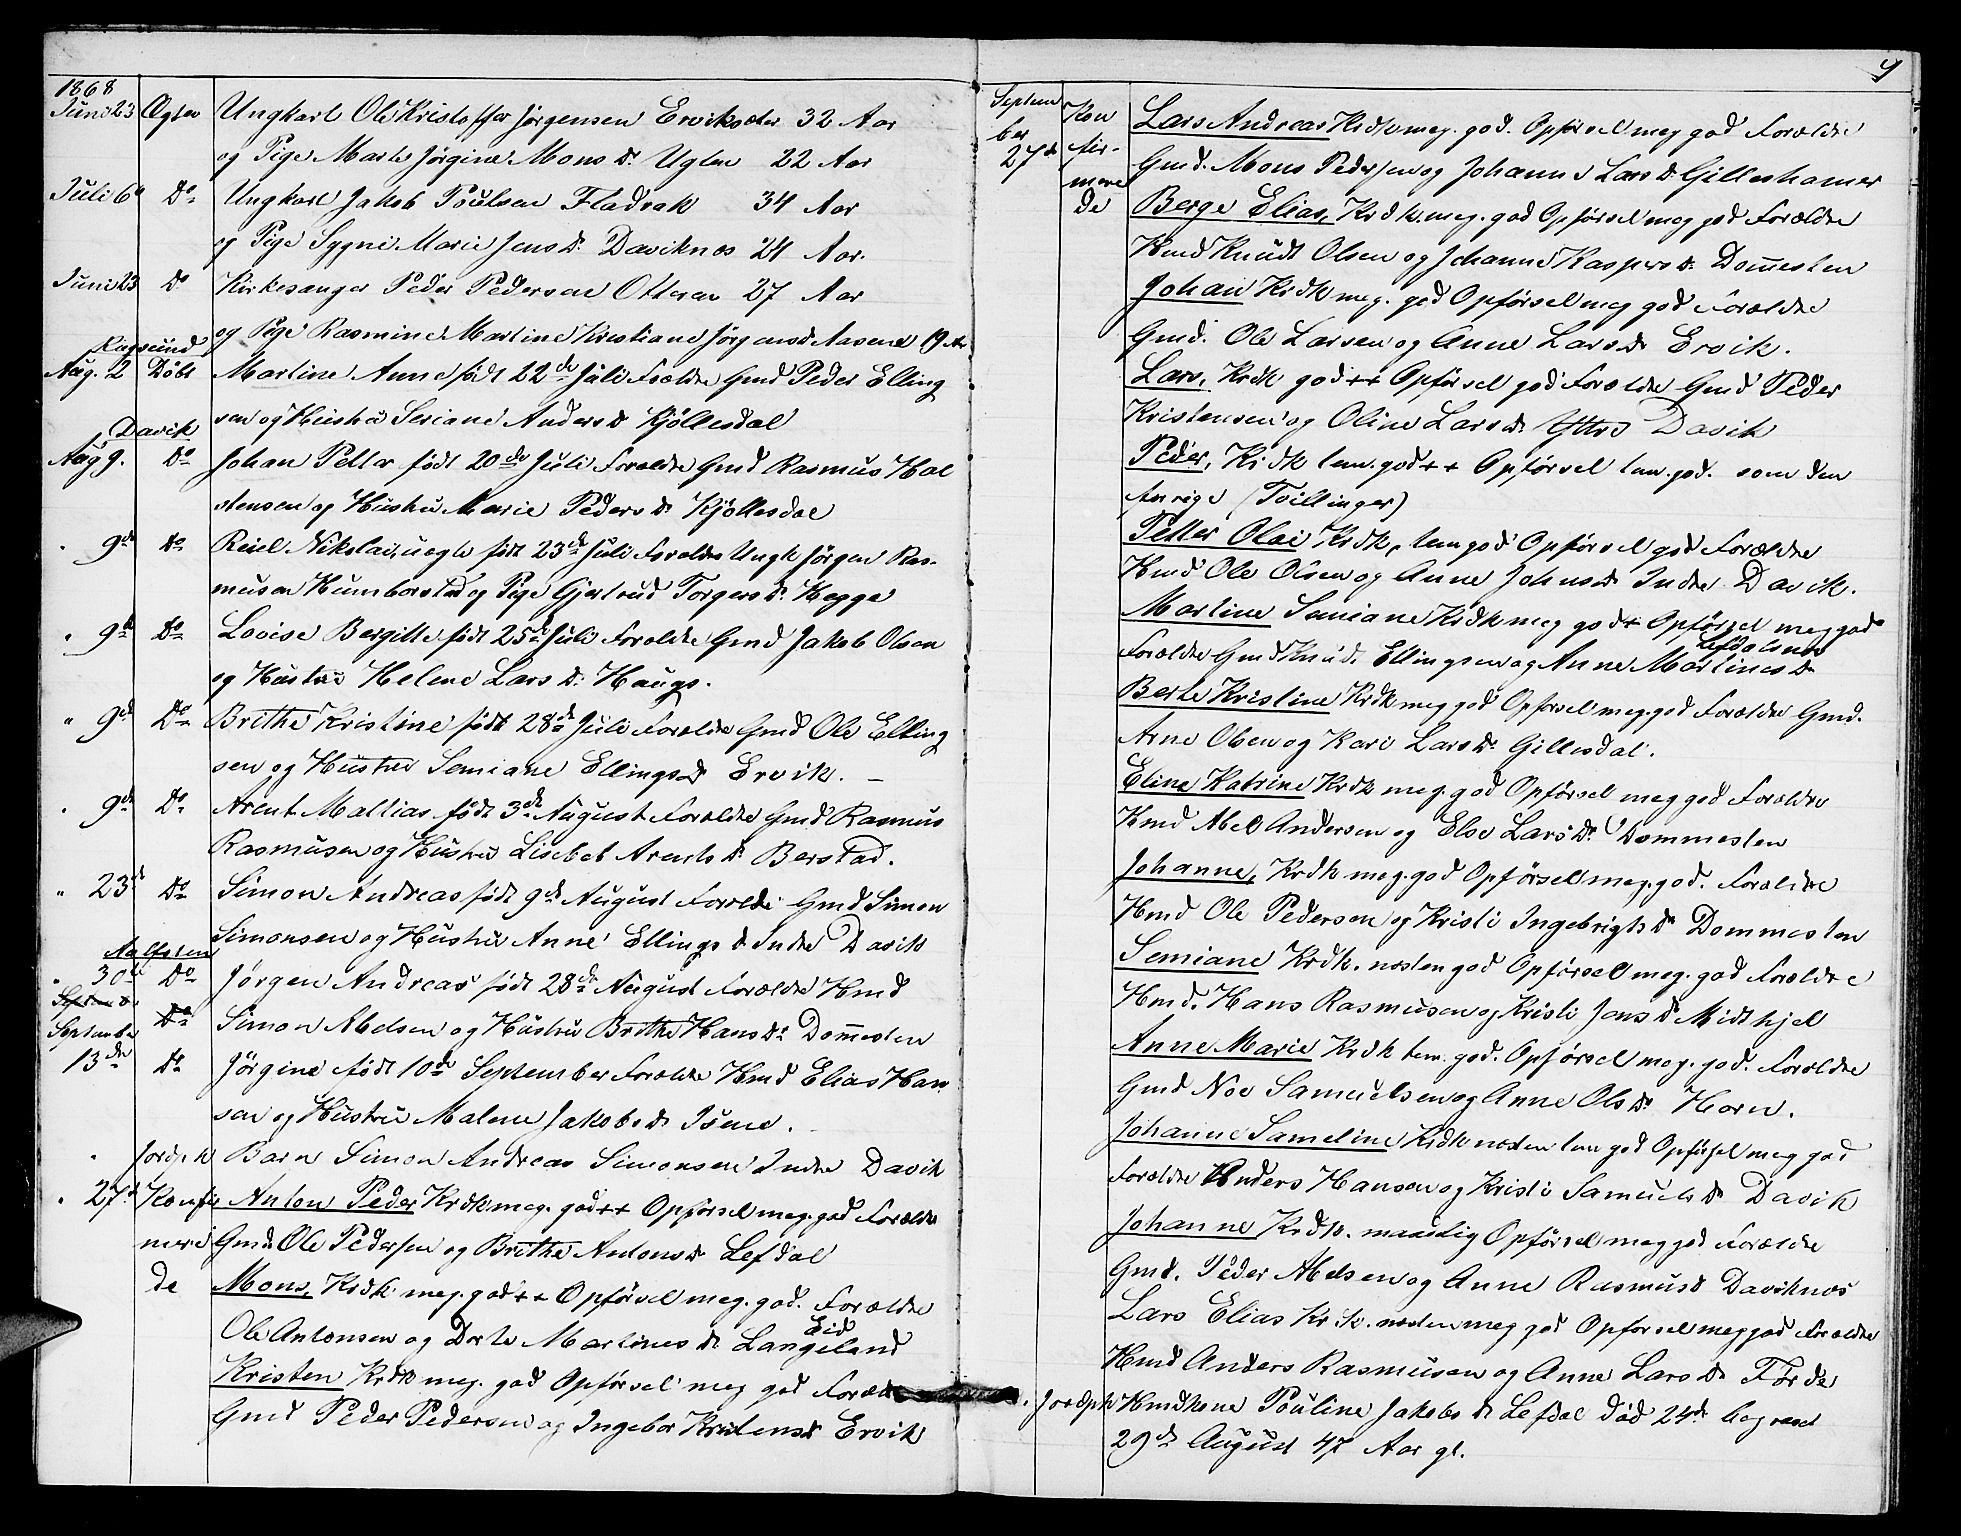 1868
Juni 23 Ægtev Ungkarl Ole Kristoffer Jørgensen Erviksæter 32 Aar
og Pige Marte Jørgine Mons Dr Uglen 22 Aar
Juli 6te Do Ungkarl Jakob Poulsen Fladrak 34 Aar
og Pige Sygni Marie Jens Dr Daviknæs 24 Aar.
Juni 23 Do Kirkesanger Peder Pedersen Otteren 27 Aar
og Pige Rasmine Martine Kristiane Jørgensd Aasene 19 Ar
Rugsund
Aug. 2 Døbt Martine Anne født 22de Juli Forældre Gmd Peder Elling
sen og Hustru Seriane Anders Dr Kjøllesdal
Davik
Aug 9. Do Johan Petter født 20de Juli Forældre Gmd Rasmus Hal
stensen og Hustru Marie Peders Dr Kjøllesdal
" 9de Do Reiel Nikolai, uægte født 23de Juli Forældre Ungk Jørgen Ras-
musen Humborstad og Pige Gjertrud Torgers Dr Hegge
" 9de Do Lovise Bergitte født 25de Juli Forældre Gmd Jakob Olsen
og Hustru Helene Lars Dr Haugs.
" 9de Do Brithe Kristine født 28de Juli Forældre Gmd Ole Elling
sen og Hustru Semiane Ellings Dr Ervik. –
" 9de Do Arent Mattias født 3de August Forældre Gmd Rasmus
Rasmusen og Hustru Lisebet Arents Dr Berstad.
" 23de Do Simon Andreas født 9de August Forældre Gmd Simon
Simonsen og Hustru Anne Ellings Dr Indre Davik
Aalfoten
" 30te Do Jørgen Andreas født 28de August Forældre Hmd
Do Simon Abelsen og Hustru Brithe Hans Dr Domesten
September
13de Do Jørgine født 10de September Forældre Hmd Elias Han
sen og Hustru Malene Jakobs Dr Isene.
" Jordpk Barn Simon Andreas Simonsen Indre Davik
" 27de Konfir Anton Peder Krdk meg. god ++ Opførsel meg. god Forældre
mere Gmd Ole Pedersen og Brithe Antons Dr Lefdal
de Mons, Krdk meg. god ++ Opførsel meg. god. Forældre
Ole Antonsen og Dorte Martines Dr Langeland Eid
Kristen Krdk meg. god Opførsel meg god Foræld
Gmd Peder Pedersen og Ingebor Kristensd Ervik
9
Septem
ber
27de
Kon
fir-
mere
de
Lars Andreas Krdk meg. god. Opførsel meg god Forældre
Gmd. Mons Pedersen og Johanne Lars Dr Gilleshamer
Berge Elias, Krdk. meg. god Opførsel meg god Forældre
Hmd Knudt Olsen og Johanne Kaspers Dr Domesten
Johan Krdk meg. god Opførsel meg god Forældre
Gmd. Ole Larsen og Anne Lars Dr Ervik.
Lars, Krdk god ++ Opførsel god Forældre Gmd Peder
Kristensen og Oline Lars Dr Yttre Davik
Peder, Krdk tem. god ++ Opførsel tem. god. som den
forrige (Tvillinger)
Petter Olai Krdk, tem god Opførsel god Forældre
Hmd Ole Olsen og Anne Johns Dr Indre Davik.
Martine Semiane Krdk meg god + Opførsel meg god
Forældre Gmd Knud. Ellingsen og Anne Martines Dr
Berte Kristine Krdk meg god Opførsel meg. god Forældre Gmd.
Arne Olsen og Kari Lars Dr Gillesdal.
Eline Katrine Krdk meg. god Opførsel meg god Forældre
Hmd Abel Andersen og Else Lars Dr Dommesten
Johanne, Krdk meg. god Opførsel meg. god. Forældre
Hmd Ole Pedersen og Kristi Ingebrigts Dr Dommesten
Semiane Krdk. næsten god Opførsel meg. god Forældre
Hmd. Hans Rasmusen og Kristi Jens Dr Midthjel
Anne Marie Krdk tem. god. Opførsel meg. god. Forældre
Gmd Noe Samuelsen og Anne Ols Dr Horn.
Johanne Sameline Krdk næsten tem god Opførsel meg god
Forældre Anders Hansen og Kristi Samuels Dr Davik
Johanne Krdk. maadelig Opførsel meg god Forældre
Gmd. Peder Abelsen og Anne Rasmusd Daviknæs
Lars Elias Krdk. næsten meg god Opførsel meg god Forældre
Hmd Anders Rasmusen og Anne Lars Dr Førde
" Jordpk Hmdkone Pouline Jakobs Dr Lefdal død 24de begravet
29de August 47 Aar gl.